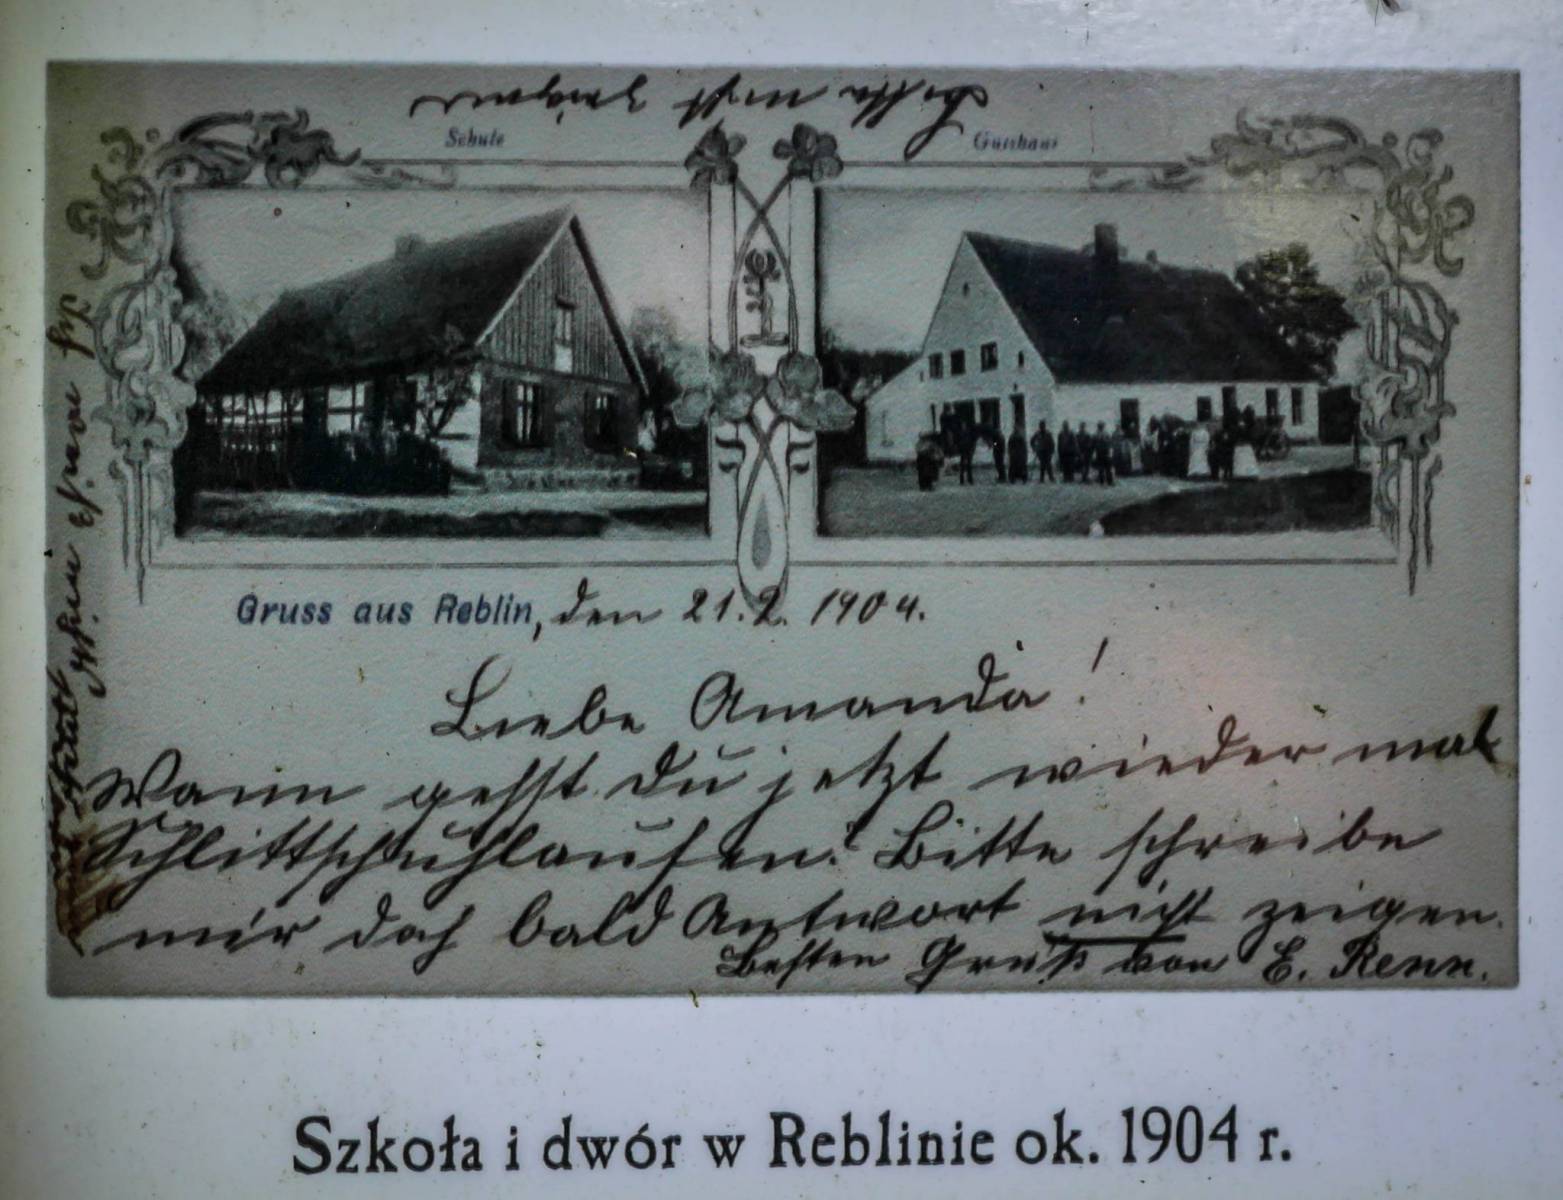 Bitte nicht zeigen
Schule
Gutshaus
Gruss aus Reblin, den 21.2. 1904.
Liebe Amanda!
Wann gehst du jetzt wieder mal
Schlittschuhlaufen? Bitte schreibe
mir doch bald Antwort nicht zeigen.
Besten Gruß von E. Renn.
Szkoła i dwór w Reblinie ok. 1904 r.